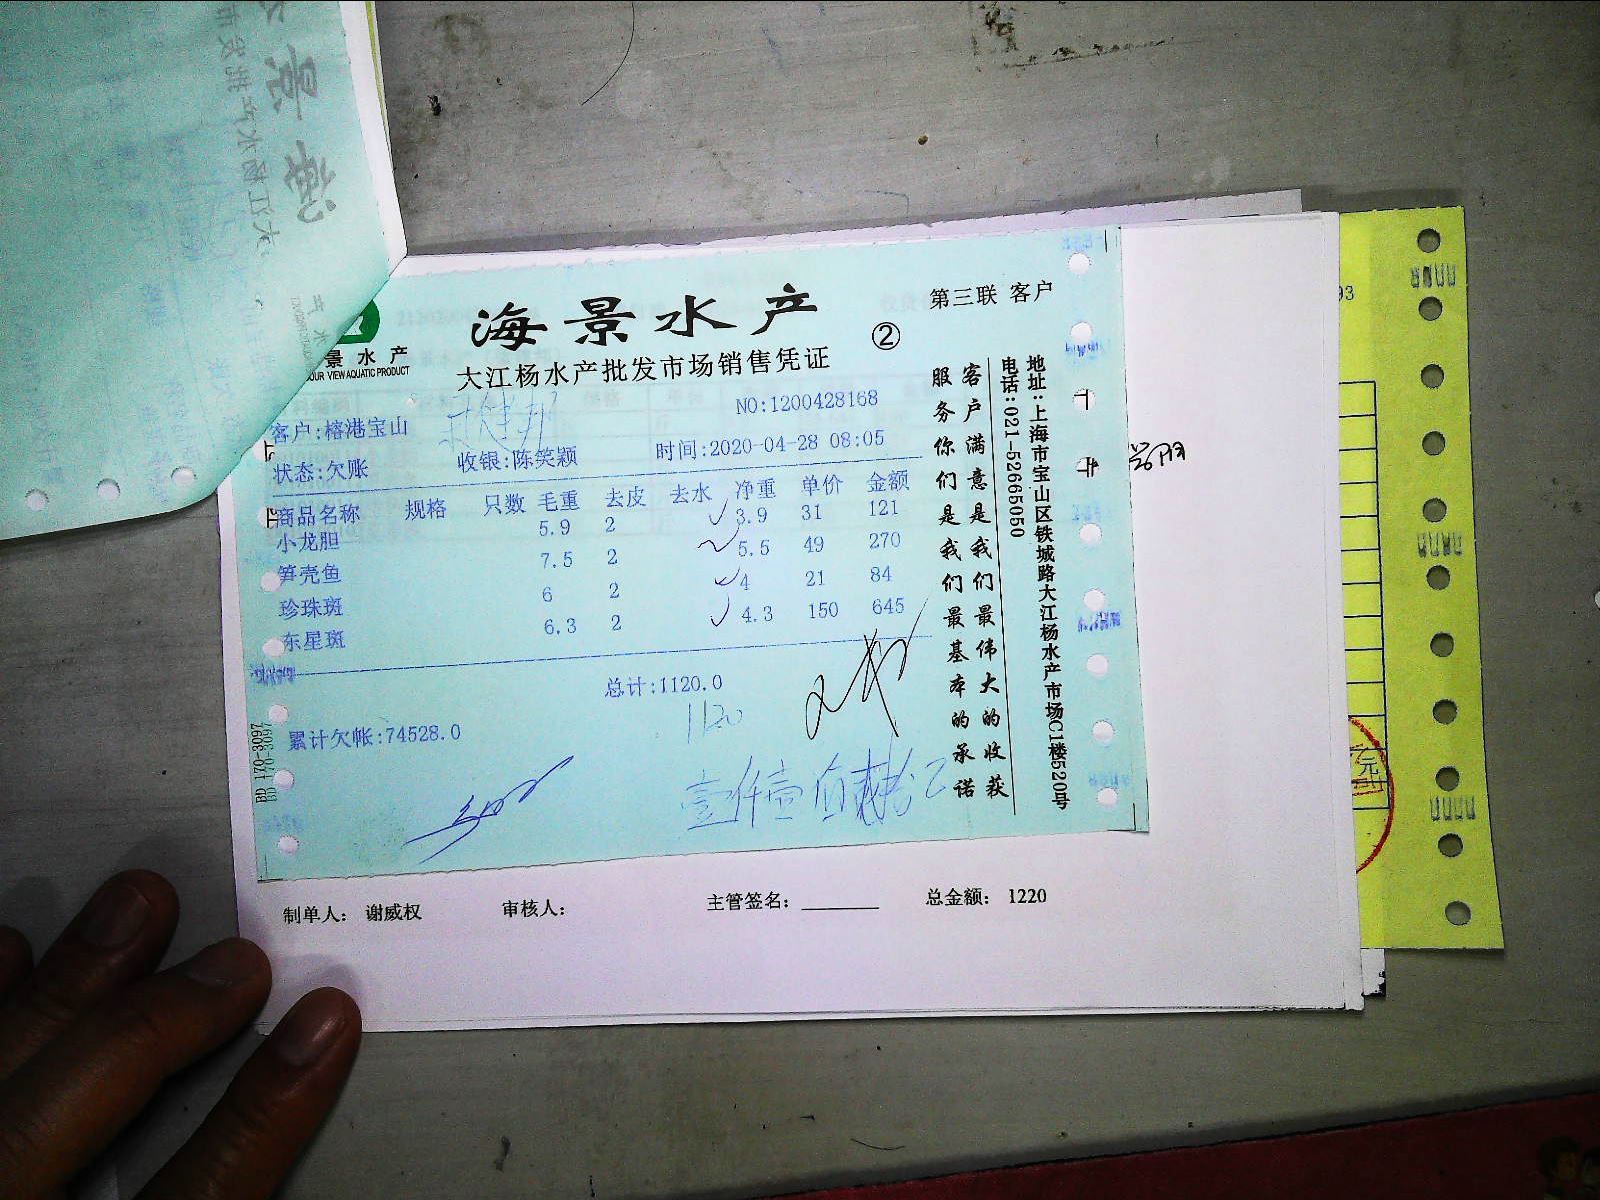 海景水产
第三联 客户
②
景水产
OUR VIEW AQUATIC PRODUCT
大江杨水产批发市场销售凭证
NO:1200428168
客户:榕港宝山
状态:欠账 收银:陈笑颖 时间:2020-04-28 08:05
商品名称 规格 只数 毛重 去皮 去水 净重 单价 金额
小龙胆 5.9 2 3.9 31 121
笋壳鱼 7.5 2 5.5 49 270
珍珠斑 6 2 4 21 84
东星斑 6.3 2 4.3 150 645
总计:1120.0
1120
累计欠帐:74528.0
客户满意是我们最伟大的收获
服务你们是我们最基本的承诺
地址:上海市宝山区铁城路大江杨水产市场C1楼520号
电话:021-52665050
BD 170-3097
制单人: 谢威权 审核人: 主管签名: 总金额: 1220
93
元